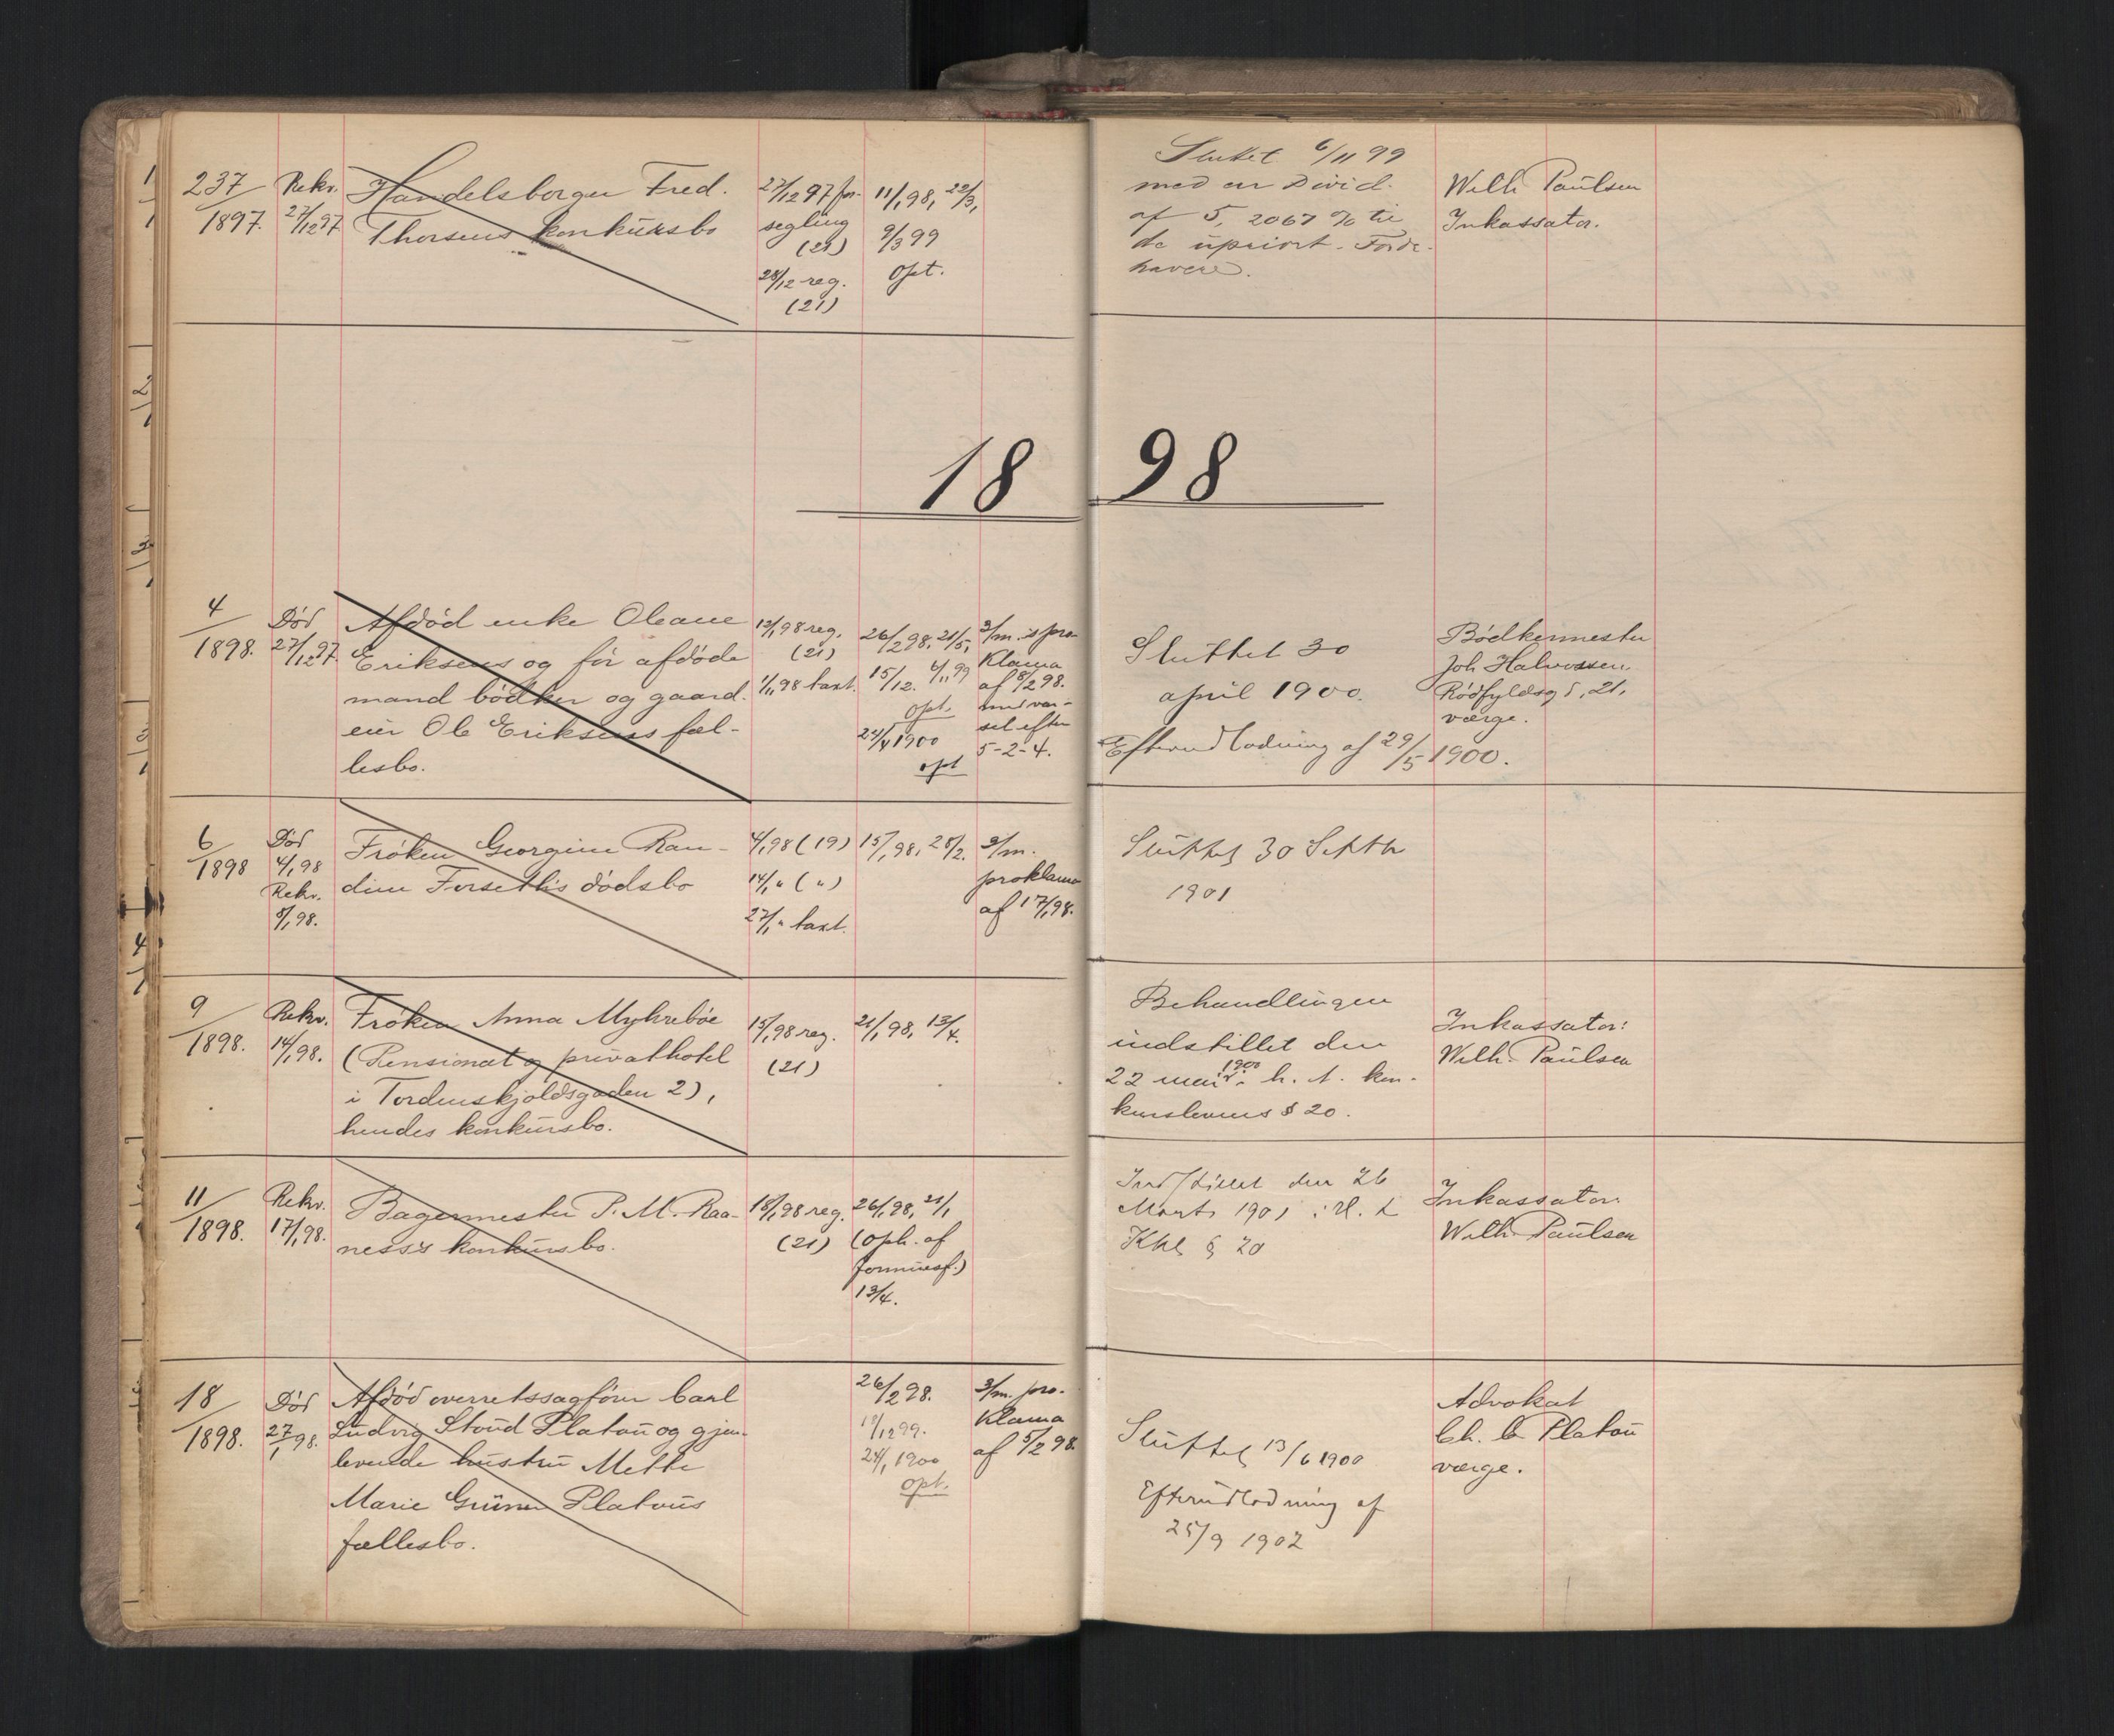 237/1897.
Rekv.
27/12 97
Handelsborger Fred.
Thorsens konkursbo
27/12 97 for-
segling
(21)
28/12 reg.
(21)
11/1 98, 22/3,
9/3 99
Opt.
Sluttet 6/11 99
med en Divid.
af 5,2067 % til
de upriort. Fordr.
havere.
Wilh Paulsen
Inkassator.
1898
4/1898.
Død
27/12 97.
Afdød enke Oleane
Eriksens og før afdøde
mand bødker og gaard-
eier Ole Eriksens fæl-
lesbo.
12/1 98 reg.
(21)
1/11 98 taxt.
26/2 98, 21/5,
15/12. 4/11 99
Opt.
24/4 1900
opt
3/m.s pro-
klama
af 8/2 98.
med var-
sel efter
5-2-4.
Sluttet 30
april 1900.
Efterudlodning af 29/5 1900.
Bødkermester
Joh. Halvorssen
Rødfyldsg 5, 21,
værge.
6/1898
Død
4/1 98
Rekv.
8/1 98.
Frøken Georgine Ran-
dine Forseths dødsbo
4/1 98 (19)
14/1 " (")
27/1 " taxt.
15/1 98, 28/2.
3/m.
proklama
af 17/1 98.
Sluttet 30 Septbr
1901
9/1898.
Rekv.
14/1 98.
Frøken Anna Myhrebøe
(Pensionat og privathotel
i Tordenskjoldsgaden 2),
hendes konkursbo.
15/1 98 reg.
(21)
21/1 98, 13/4.
Behandlingen
indstillet den
22 mai 1900 h. t. kon-
kurslovens § 20.
Inkassator:
Wilh. Paulsen
11/1898.
Rekv.
17/1 98.
Bagermester P. M. Raa-
ness's konkursbo.
18/1 98 reg.
(21)
26/1 98, 21/1
(oph. af
formuesf.)
13/4.
Indstillet den 26
Marts 1901 i H. t
Kkl § 20
Inkassator:
Wilh. Paulsen
18/1898.
Død
27/1 98.
Afdød overretssagfører Carl
Ludvig Stoud Platou og gjen-
levende hustru Mette
Marie Grüner Platous
fællesbo.
26/2 98.
19/12 99.
24/1 1900
opt.
3/m. pro-
klama
af 5/2 98.
Sluttet 13/6 1900
Efterudlodning af
25/9 1902
Advokat
Ch. C. Platou
værge.